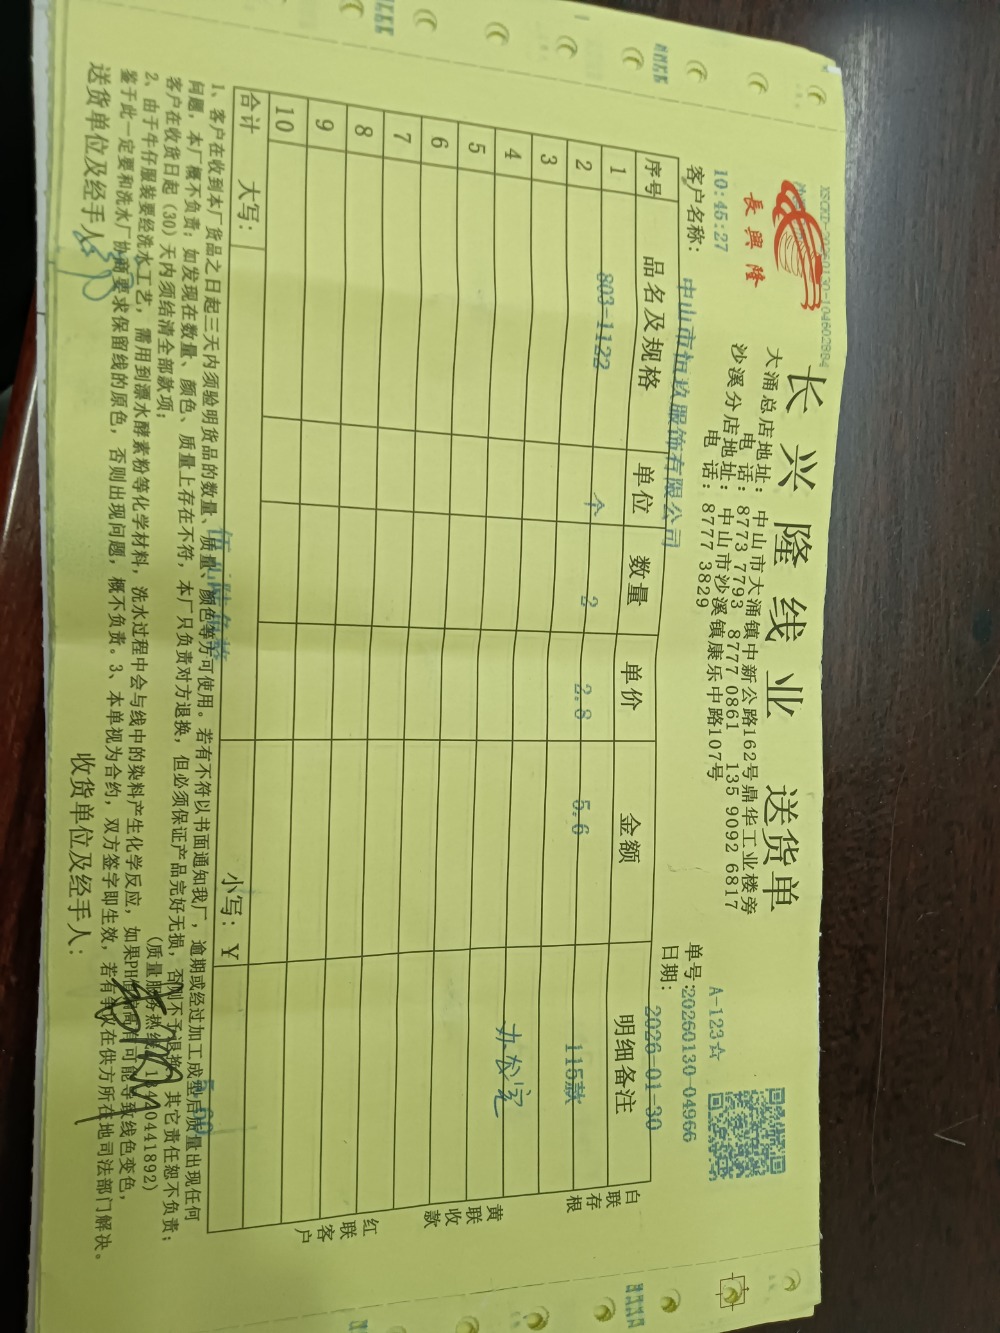 長興隆
长兴隆线业 送货单
大涌总店地址：中山市大涌镇中新公路162号鼎华工业楼旁
电 话：8773 7793 8777 0861 135 9092 6817
沙溪分店地址：中山市沙溪镇康乐中路107号
电 话：8777 3829
A-123☆
10:45:27
单号:20260130-04966
客户名称： 中山市恒玖服饰有限公司
日期： 2026-01-30
序号 品名及规格 单位 数量 单价 金额 明细备注
1 803-1122 个 2 2.8 5.6 115款
2
3
4
5
6
7
8
9
10
合计 大写： 小写：￥
白联存根
黄联收款
红联客户
1、客户在收到本厂货品之日起三天内须验明货品的数量、质量、颜色等方可使用。若有不符以书面通知我厂，逾期或经过加工成型后质量出现任何
问题，本厂概不负责；如发现在数量、颜色、质量上存在不符，本厂只负责对方退换，但必须保证产品完好无损，否则不予退换，其它责任恕不负责；
客户在收货日起（30）天内须结清全部款项；
2、由于牛仔服装要经洗水工艺，需用到漂水酵素粉等化学材料，洗水过程中会与线中的染料产生化学反应，如果PH值偏高有可能导致线色变色，
鉴于此一定要和洗水厂协商要求保留线的原色，否则出现问题，概不负责。3、本单视为合约，双方签字即生效，若有争议在供方所在地司法部门解决。
送货单位及经手人： 收货单位及经手人：